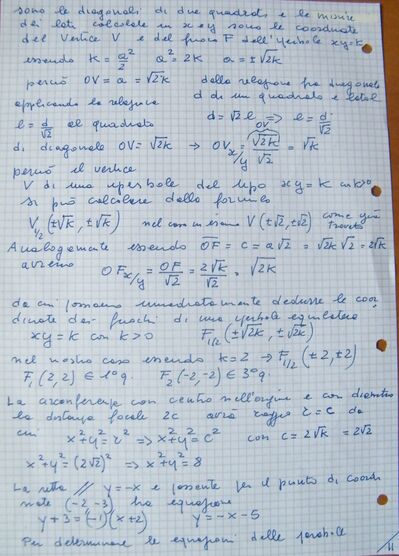 sono le diagonali di due quadrati e le misure
dei lati calcolate in x e y sono le coordinate
del vertice V e del fuoco F dell'iperbole xy=k
essendo k = a²/2   a² = 2k   a = ±√2k
perciò OV = a = √2k   dalla relazione fra diagonale
applicando la relazione   d di un quadrato e lato l
l = d/√2 al quadrato   d = √2 l => l = d/√2
di diagonale OV = √2k → OV x/y = OV √2k/√2 = √k
perciò il vertice
V di una iperbole del tipo xy = k con k>0
si può calcolare dalla formula
V1/2 (±√k, ±√k)   nel caso in esame V(±√2, ±√2) come già trovato
Analogamente essendo OF = c = a√2 = √2k √2 = 2√k
avremo
OF x/y = OF/√2 = 2√k/√2 = √2k
da cui possiamo immediatamente dedurre le coor
dinate dei fuochi di una iperbole equilatera
xy = k con k>0   F1/2 (±√2k, ±√2k)
nel nostro caso essendo k=2 → F1/2 (±2, ±2)
F1 (2,2) ∈ 1° q.   F2 (-2,-2) ∈ 3° q.
La circonferenza con centro nell'origine e con diametro
la distanza focale 2c avrà raggio r = c da
cui   x²+y² = r² => x²+y² = c²   con c = 2√k = 2√2
x²+y² = (2√2)² => x²+y² = 8
La retta // y = -x e passante per il punto di coordi
nate (-2,-3) ha equazione
y+3 = (-1)(x+2)   y = -x-5
Per determinare le equazioni delle parabole
11